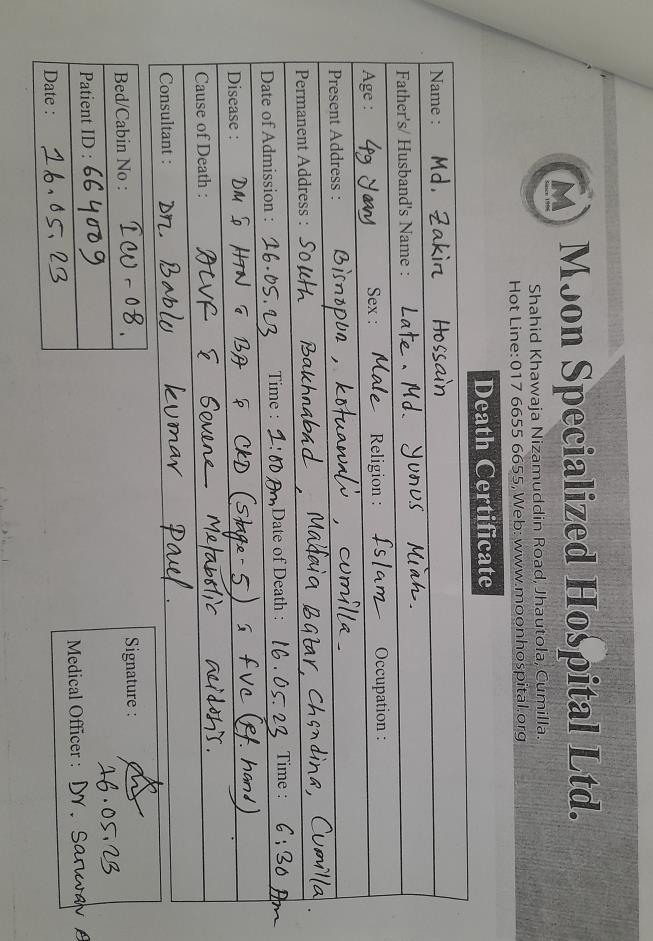 Moon Specialized Hospital Ltd.
Since 1996
Shahid Khawaja Nizamuddin Road, Jhautola, Cumilla.
Hot Line: 017 6655 6655, Web: www.moonhospital.org
Death Certificate
Name : Md. Zakir Hossain
Father's/ Husband's Name : Late. Md. Yunus Miah.
Age : 49 years Sex : Male Religion : Islam Occupation :
Present Address : Bisnopur, kotuawali, cumilla.
Permanent Address : South Bakhnabad, Madaia Bazar, Chandina, Cumilla.
Date of Admission : 16.05.23 Time : 1:00 Am Date of Death : 16.05.23 Time : 6:30 Am
Disease : DM & HTN & BA & CKD (stage-5) & (hand)
Cause of Death : ALVF & Severe Metabolic acidosis.
Consultant : Dr. Bablu kumar Paul.
Bed/Cabin No : ICU-08.
Patient ID : 664009
Date : 16.05.23
Signature :
16.05.23
Medical Officer : Dr. Sarwar A